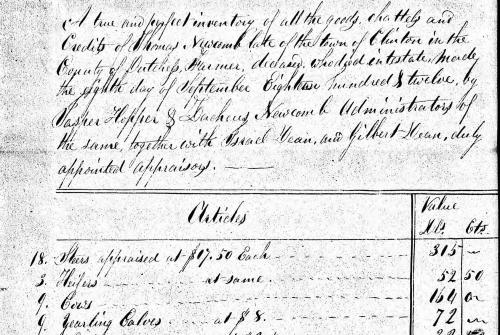 A true and perfect inventory of all the goods, chattels and
Credits of Thomas Newcomb late of the town of Clinton in the
County of Dutchess, Farmer, deceased, who died intestate, made
the eighth day of September Eighteen hundred & twelve, by
Jasper Hopper & Zacheus Newcomb Administrators of
the same, together with Israel Dean, and Gilbert Dean, duly
appointed appraisors. —
Articles Value
Dls. Cts.
18. Stears appraised at $17.50 Each 315 —
3. Heifers at same. 52 50
9. Cows 164 or
9 Yearling Calves at $8. 72 —